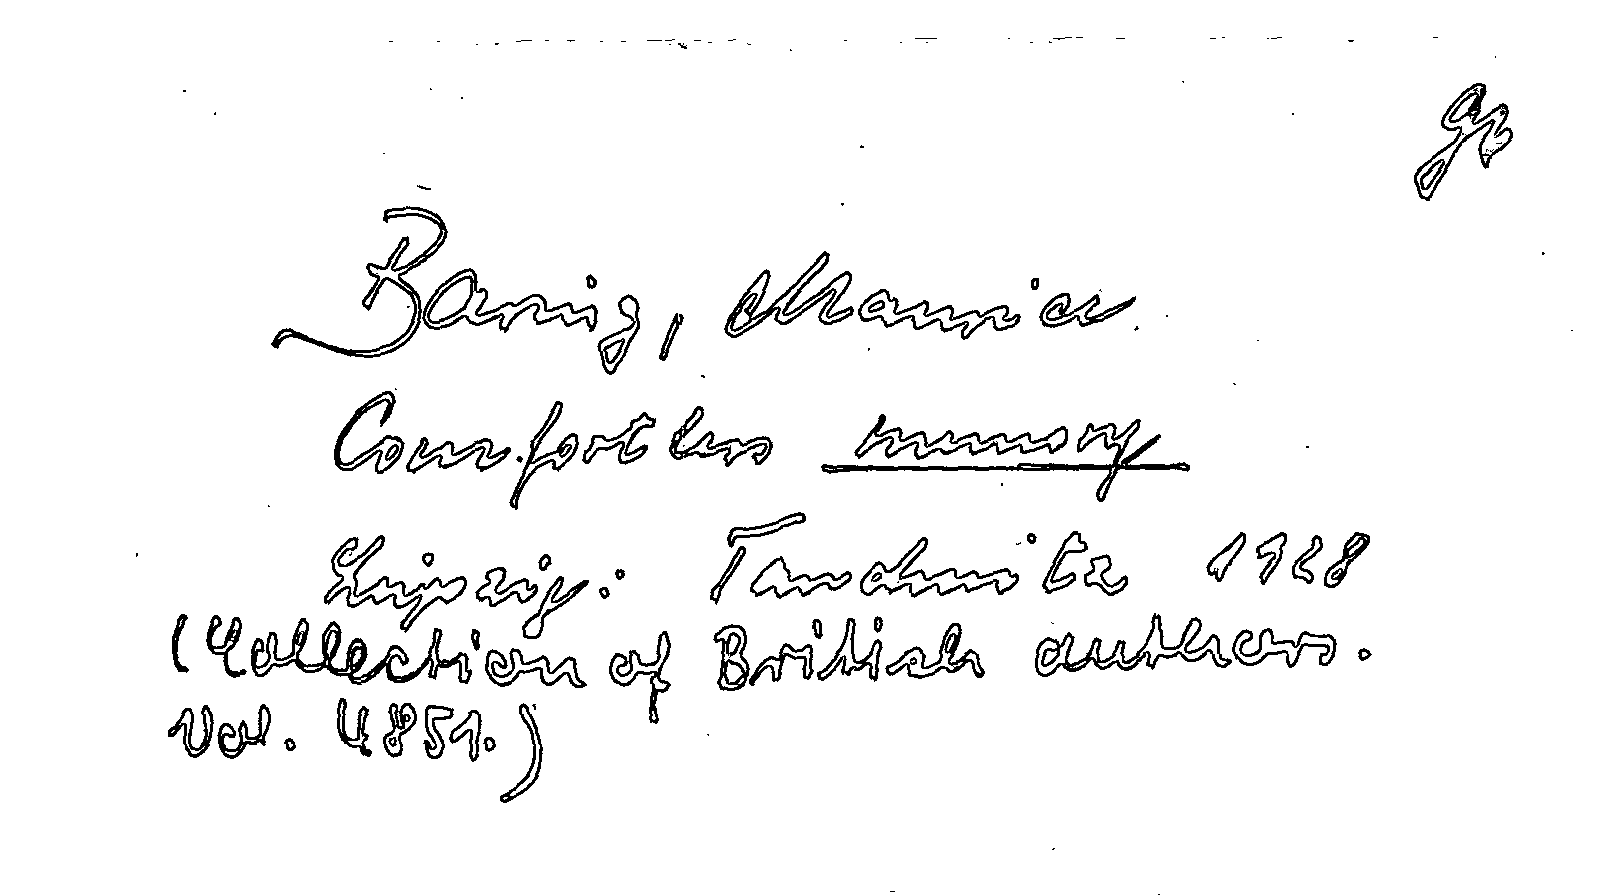 gr
Baring, Maurice
Comfortless memory
Leipzig: Tauchnitz 1928
(Collection of British authors.
Vol. 4851.)